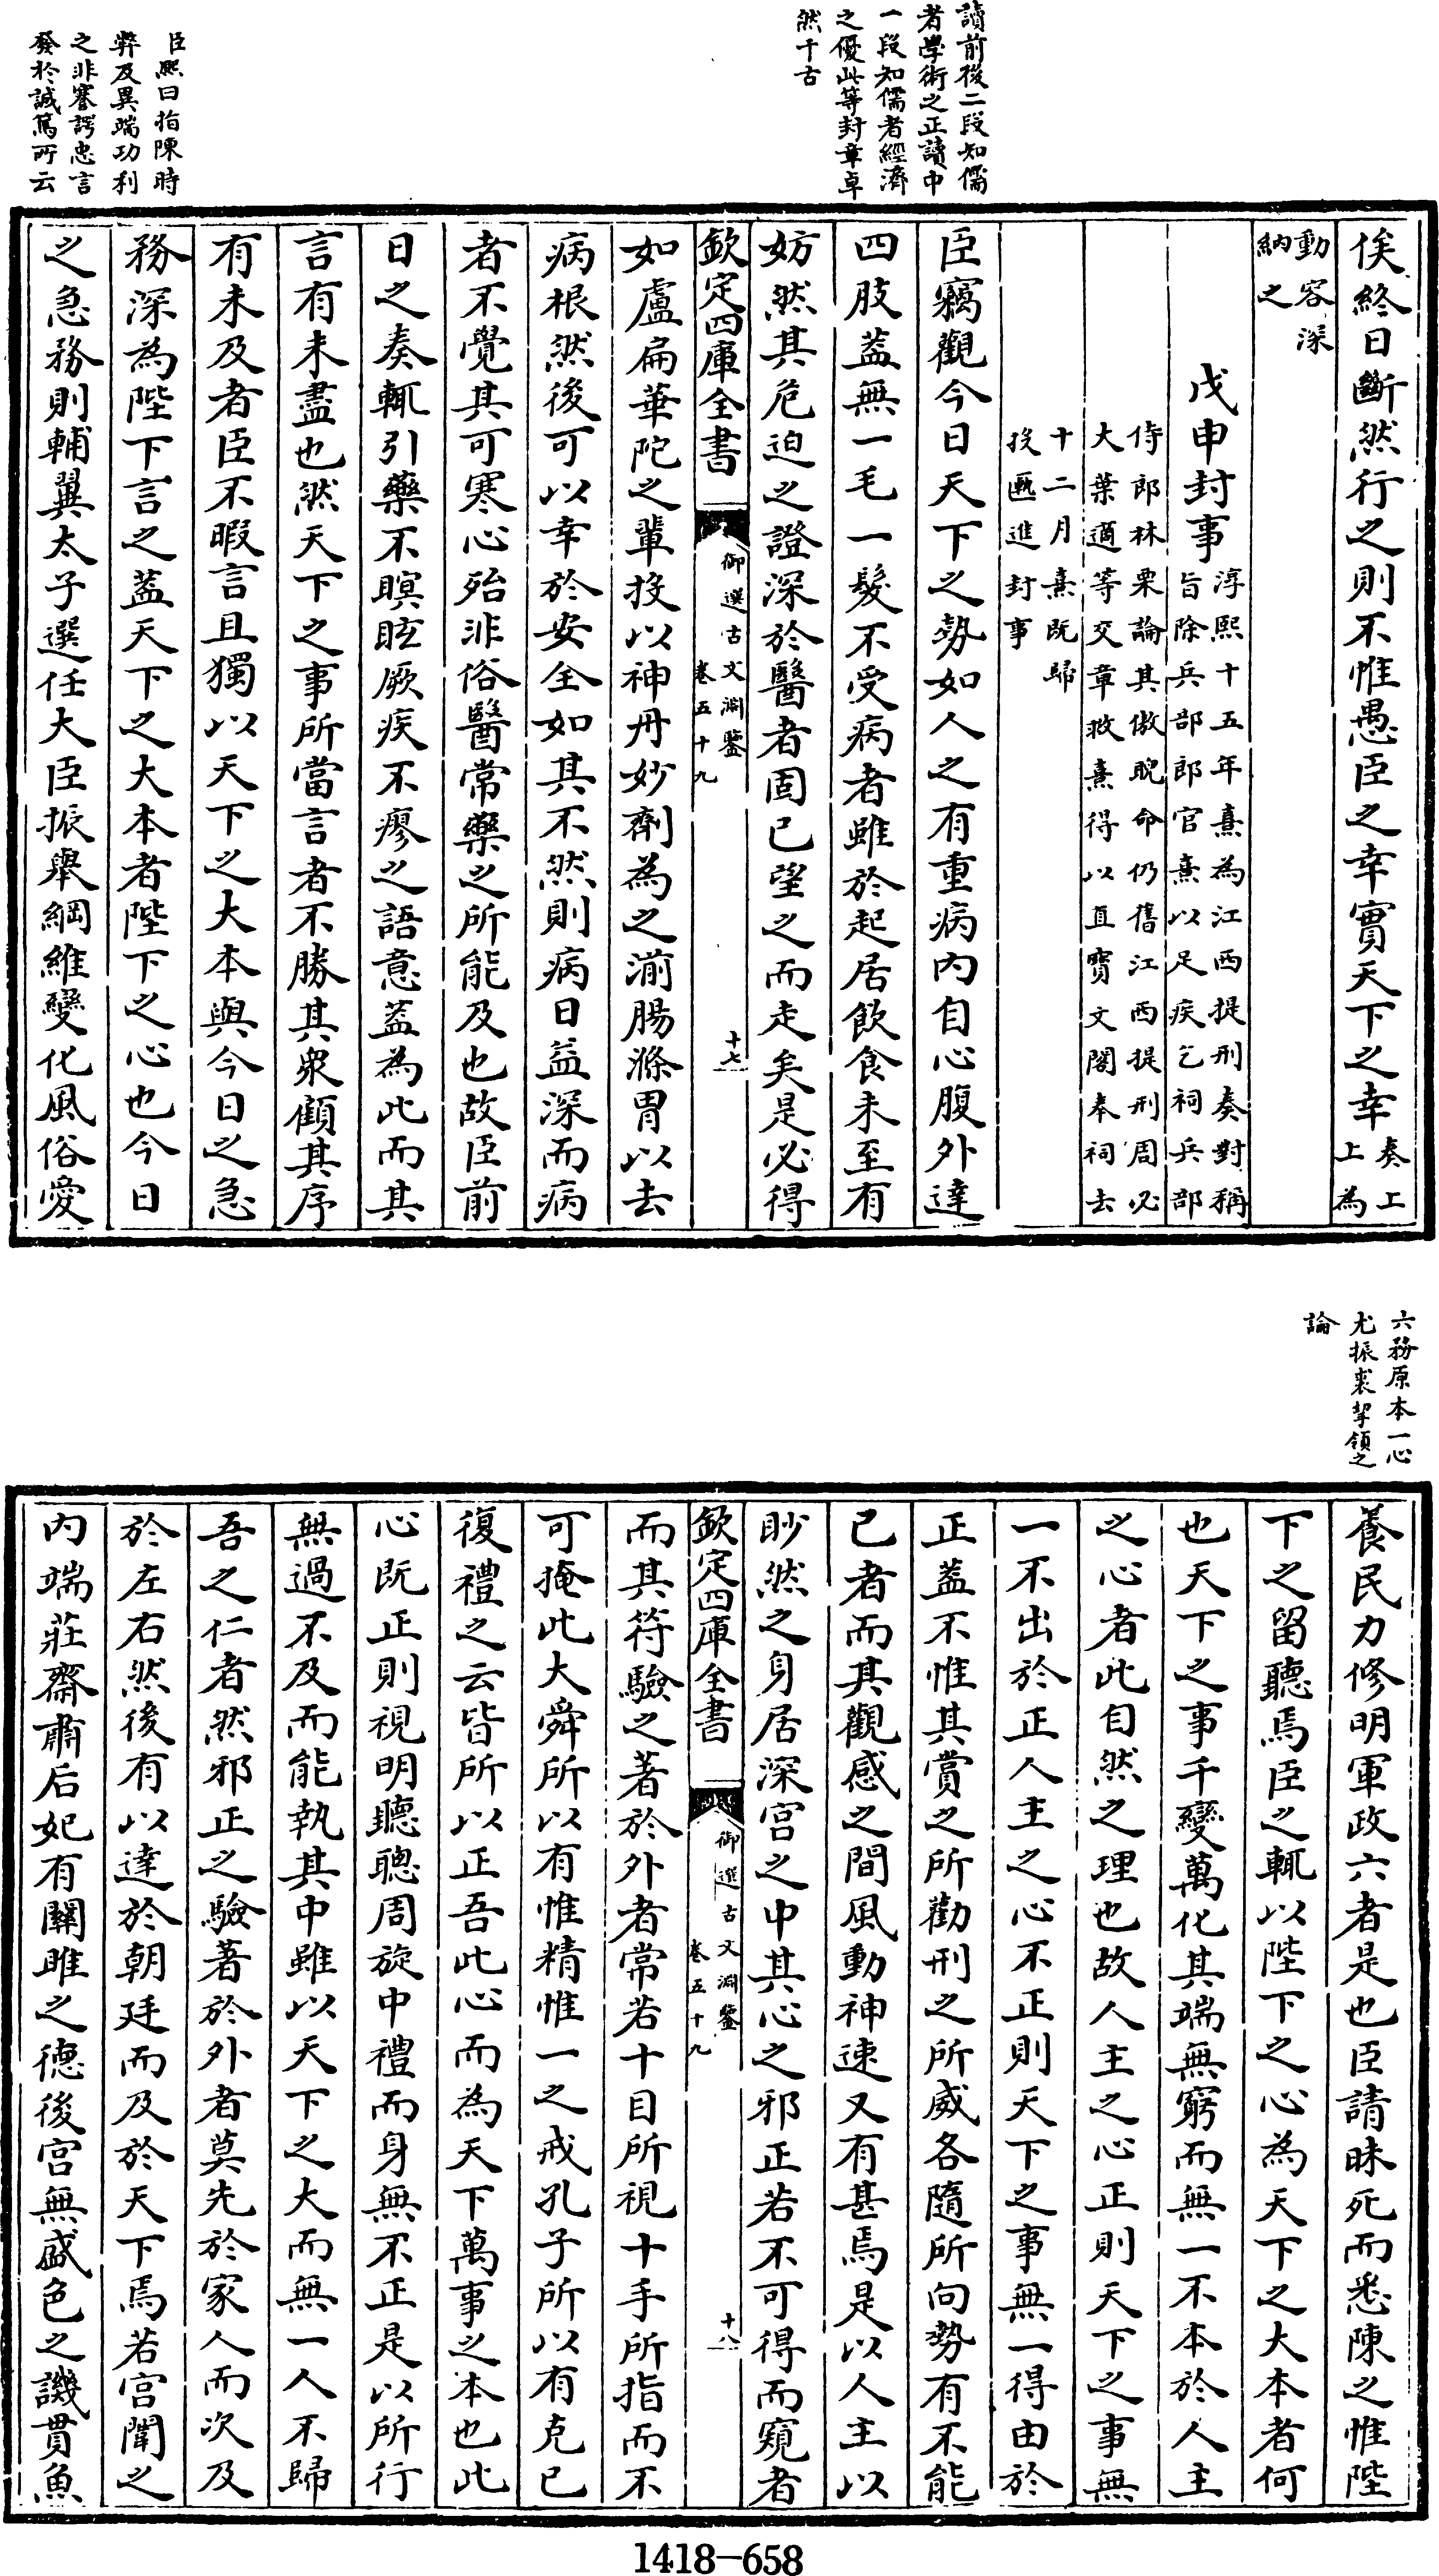 讀前後二段知儒
者學術之正讀中
一段知儒者經濟
之優此等封章卓
然千古
臣熙曰指陳時
弊及異端功利
之非謇諤忠言
發於誠篤所云
俟終日斷然行之則不惟愚臣之幸實天下之幸奏上
上為
動容深
納之
戊申封事淳熙十五年熹為江西提刑奏對稱
旨除兵部郎官熹以足疾乞祠兵部
侍郎林栗論其傲睨命仍舊江西提刑周必
大葉適等交章救熹得以直寶文閣奉祠去
十二月熹既歸
投匭進封事
臣竊觀今日天下之勢如人之有重病內自心腹外達
四肢蓋無一毛一髮不受病者雖於起居飲食未至有
妨然其危迫之證深於醫者固已望之而走矣是必得
欽定四庫全書
御選古文淵鑒
卷五十九
十七
如盧扁華陀之輩投以神丹妙劑為之湔腸滌胃以去
病根然後可以幸於安全如其不然則病日益深而病
者不覺其可寒心殆非俗醫常藥之所能及也故臣前
日之奏輒引藥不瞑眩厥疾不瘳之語意蓋為此而其
言有未盡也然天下之事所當言者不勝其衆顧其序
有未及者臣不暇言且獨以天下之大本與今日之急
務深為陛下言之蓋天下之大本者陛下之心也今日
之急務則輔翼太子選任大臣振舉綱維變化風俗愛
六務原本一心
尤振裘挈領之
論
養民力修明軍政六者是也臣請昧死而悉陳之惟陛
下之留聽焉臣之輒以陛下之心為天下之大本者何
也天下之事千變萬化其端無窮而無一不本於人主
之心者此自然之理也故人主之心正則天下之事無
一不出於正人主之心不正則天下之事無一得由於
正蓋不惟其賞之所勸刑之所威各隨所向勢有不能
已者而其觀感之間風動神速又有甚焉是以人主以
眇然之身居深宮之中其心之邪正若不可得而窺者
欽定四庫全書
御選古文淵鑒
卷五十九
十八
而其符驗之著於外者常若十目所視十手所指而不
可掩此大舜所以有惟精惟一之戒孔子所以有克已
復禮之云皆所以正吾此心而為天下萬事之本也此
心既正則視明聽聰周旋中禮而身無不正是以所行
無過不及而能執其中雖以天下之大而無一人不歸
吾之仁者然邪正之驗著於外者莫先於家人而次及
於左右然後有以達於朝廷而及於天下焉若宮闈之
內端莊齋肅后妃有關雎之德後宮無盛色之譏貫魚
1418-658